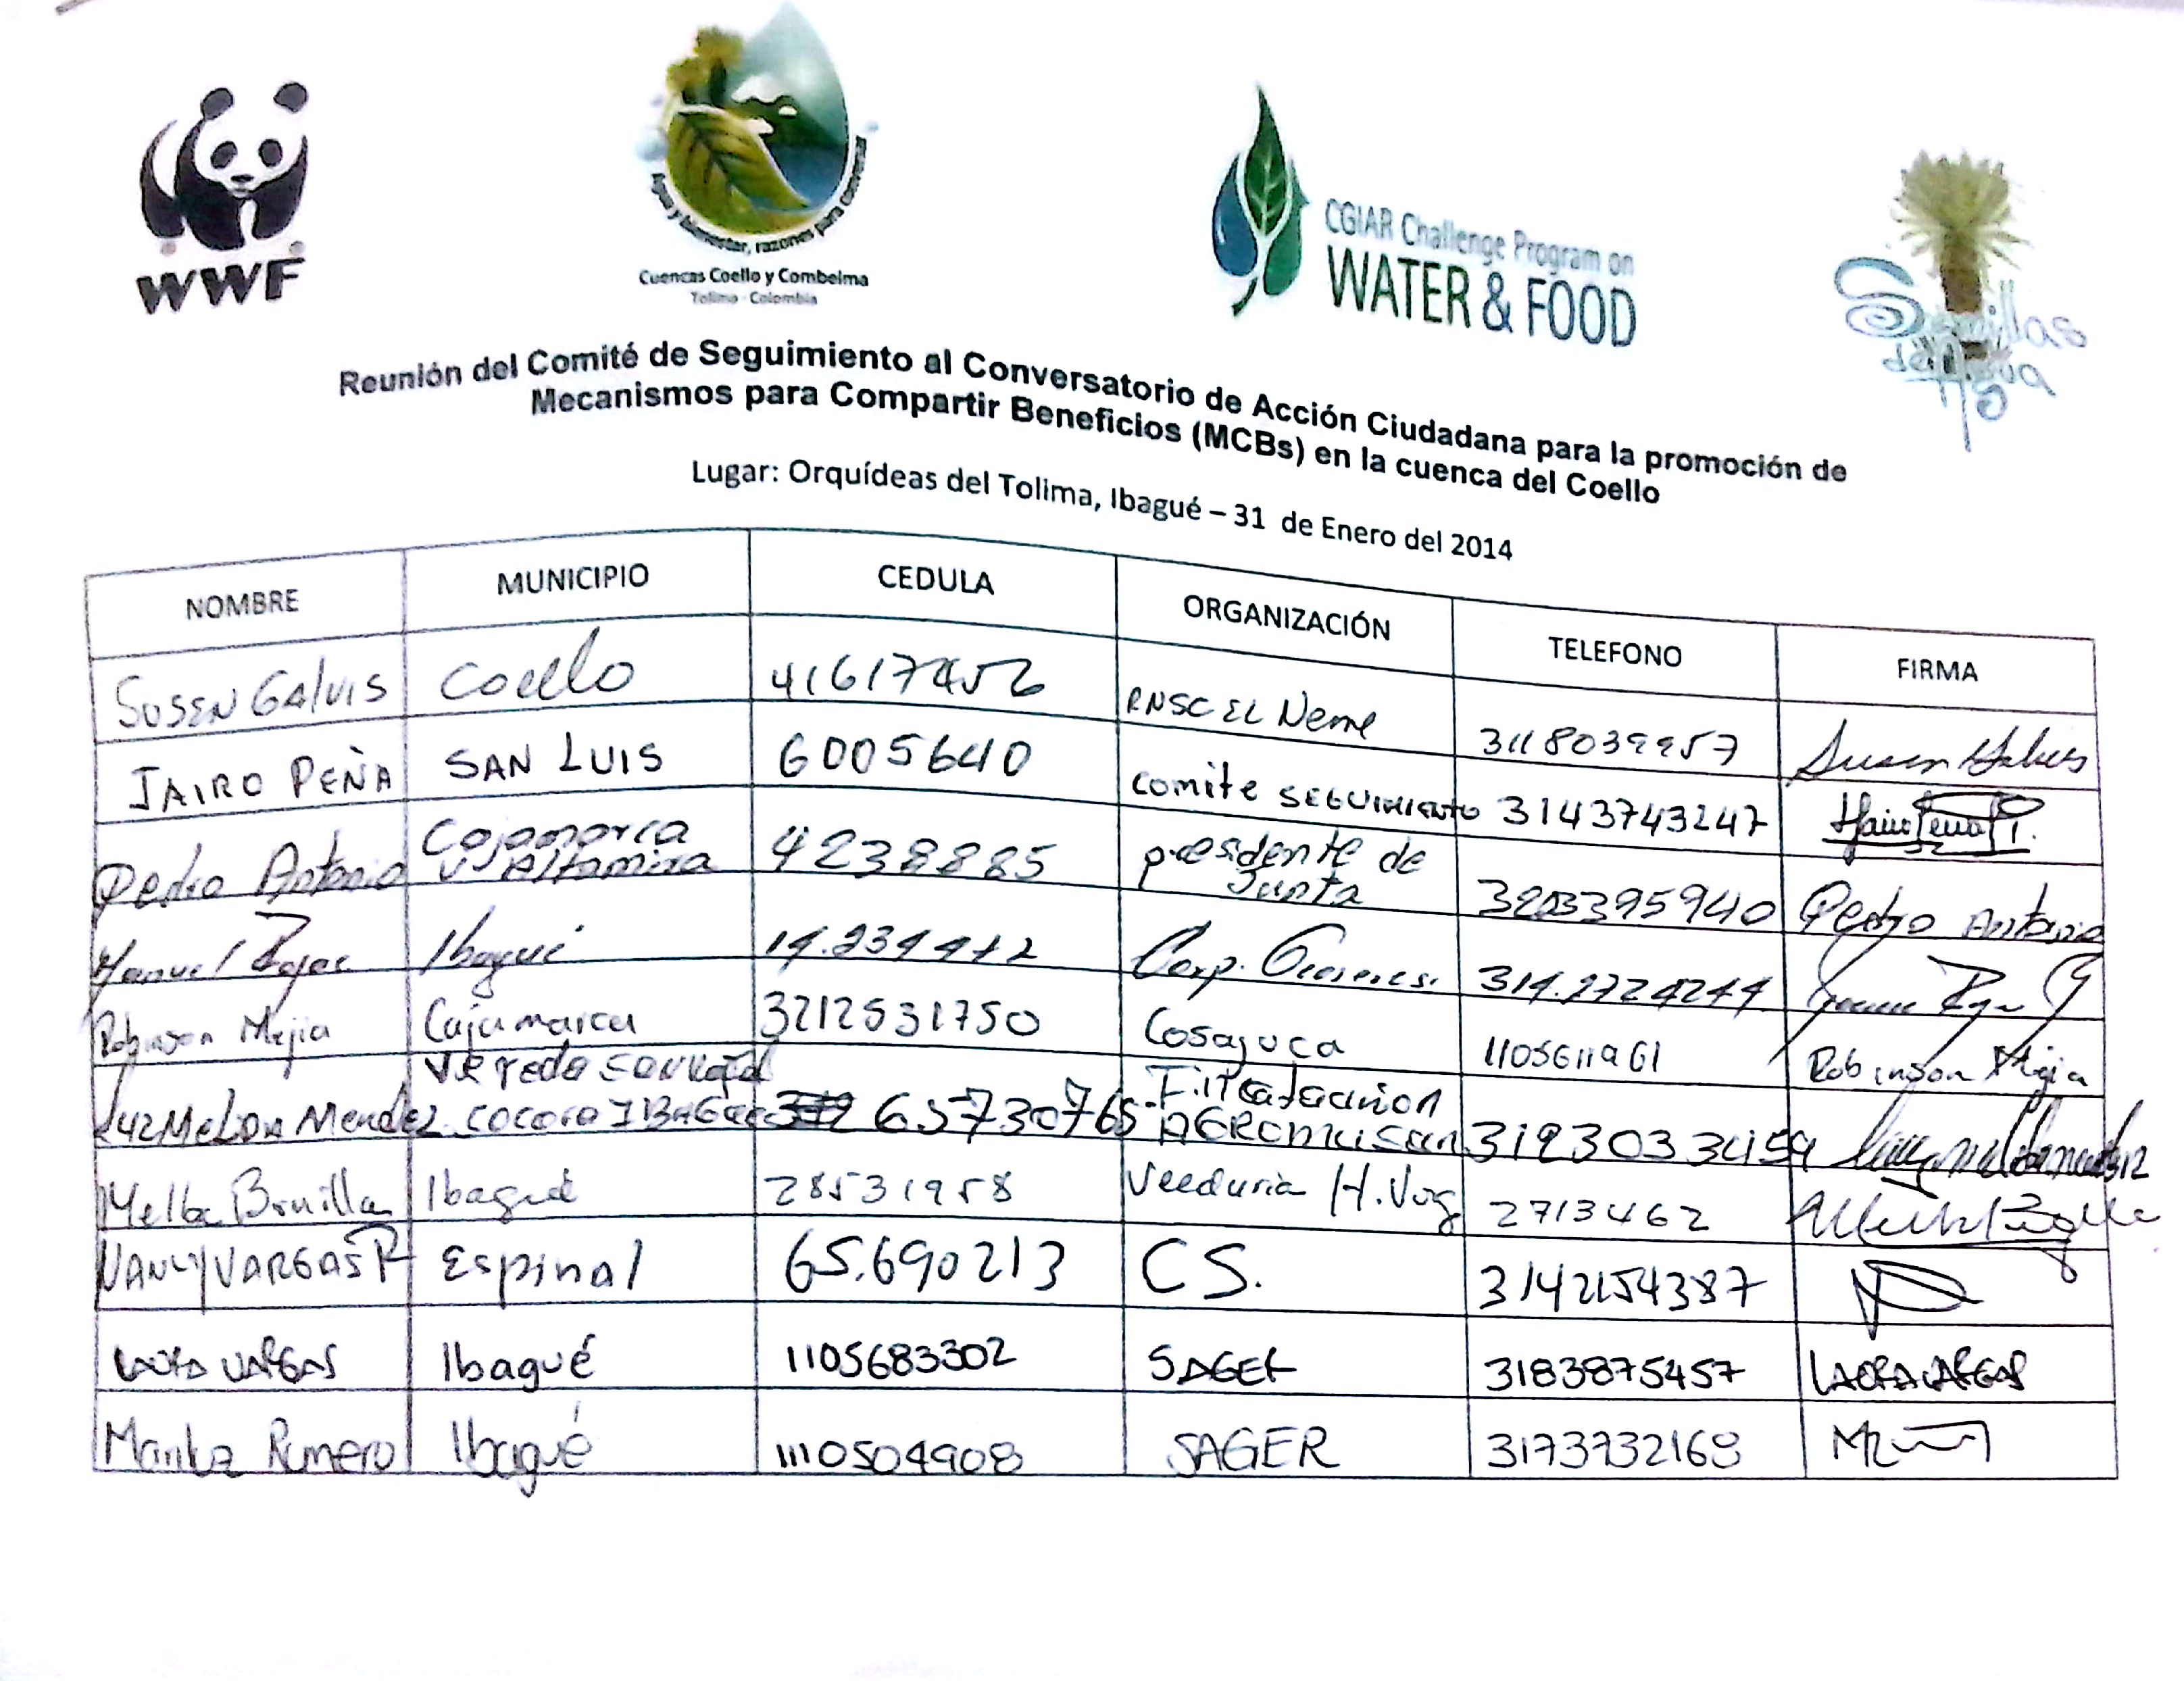 WWF
Agua y bienestar, razones para conversar
Cuencas Coello y Combeima
Tolima - Colombia
CGIAR Challenge Program on
WATER & FOOD
Semillas
de Agua
Reunión del Comité de Seguimiento al Conversatorio de Acción Ciudadana para la promoción de
Mecanismos para Compartir Beneficios (MCBs) en la cuenca del Coello
Lugar: Orquídeas del Tolima, Ibagué – 31 de Enero del 2014
NOMBRE MUNICIPIO CEDULA ORGANIZACIÓN TELEFONO FIRMA
SUSEN GALVIS Coello 41617452 RNSC EL Neme 3118039957 Susen Galvis
JAIRO PEÑA SAN LUIS 6005640 comite SEGUIMIENTO 3143743247 Jairo Peña
Pedro Antonio Cajamarca V. Altamira 4238885 presidente de Junta 3203395940 Pedro Antonio
Manuel Rojas Ibagué 14.234412 Corp. 314.2724244
Robinson Mejia Cajamarca 3212531750 Cosajuca 1105611961 Robinson Mejia
Luz Melba Mendez Vereda cocora IBAGUE 65730765 3123033459
Melba Bonilla Ibagué 28531958 Veeduria H. Vog 2713462
NANCY VARGAS R Espinal 65.690213 C S. 3142154387
LAURA VARGAS Ibagué 1105683302 SAGER 3183875457 LAURA VARGAS
Maritza Romero Ibagué 1110504908 SAGER 3173732168